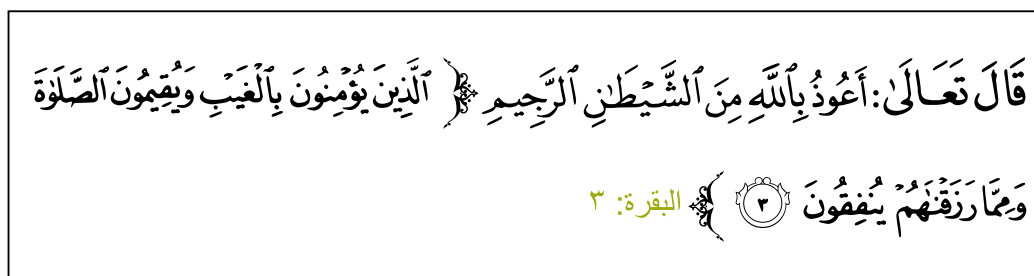 قَالَ تَعَالَىٰ: أَعُوذُ بِٱللَّهِ مِنَ ٱلشَّيۡطَٰنِ ٱلرَّجِيمِ ﴿ ٱلَّذِينَ يُؤۡمِنُونَ بِٱلۡغَيۡبِ وَيُقِيمُونَ ٱلصَّلَوٰةَ
وَمِمَّا رَزَقۡنَٰهُمۡ يُنفِقُونَ ٣ ﴾ البقرة: ٣